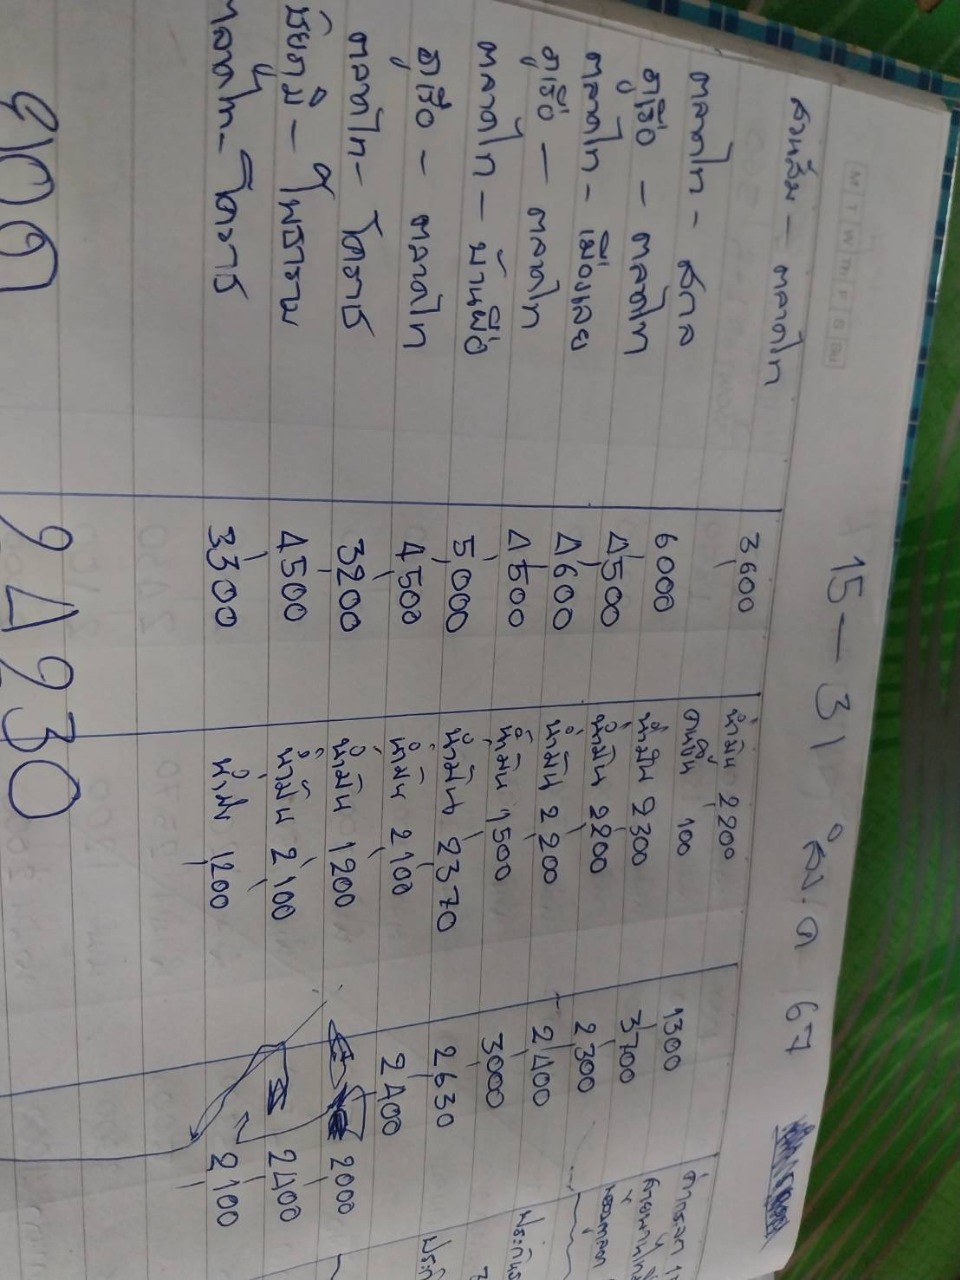 15-31 ส.ค 67
M T W Th F S Su
สวนส้ม - ตลาดไท 3600 น้ำมัน 2200 1300
คนขึ้น 100
ตลาดไท - สกล 6000 น้ำมัน 2300 3700
ภูเรือ - ตลาดไท 4500 น้ำมัน 2200 2300
ตลาดไท - เมืองเลย 4600 น้ำมัน 2200 2400
ภูเรือ - ตลาดไท 4500 น้ำมัน 1500 3000
ตลาดไท - บ้านผือ 5,000 น้ำมัน 2370 2630
ภูเรือ - ตลาดไท 4500 น้ำมัน 2100 2400
ตลาดไท - โคราช 3200 น้ำมัน 1200 2000
ชัยภูมิ - โพธาราม 4500 น้ำมัน 2100 2400
ตลาดไท - โคราช 3300 น้ำมัน 1200 2100
24230